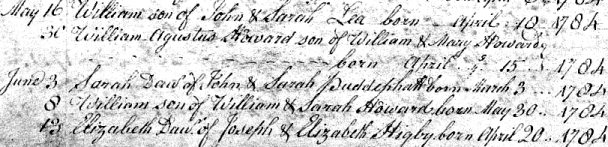 May 16 William son of John & Sarah Lea born April 18 1784
30 William Agustus Howard son of William & Mary Howard
born April 15 1784
June 3 Sarah Daw. of John & Sarah Puddephatt born March 3 1784
8 William son of William & Sarah Howard born May 30 1784
13 Elizabeth Daw. of Joseph & Elizabeh Higby born April 20 1784